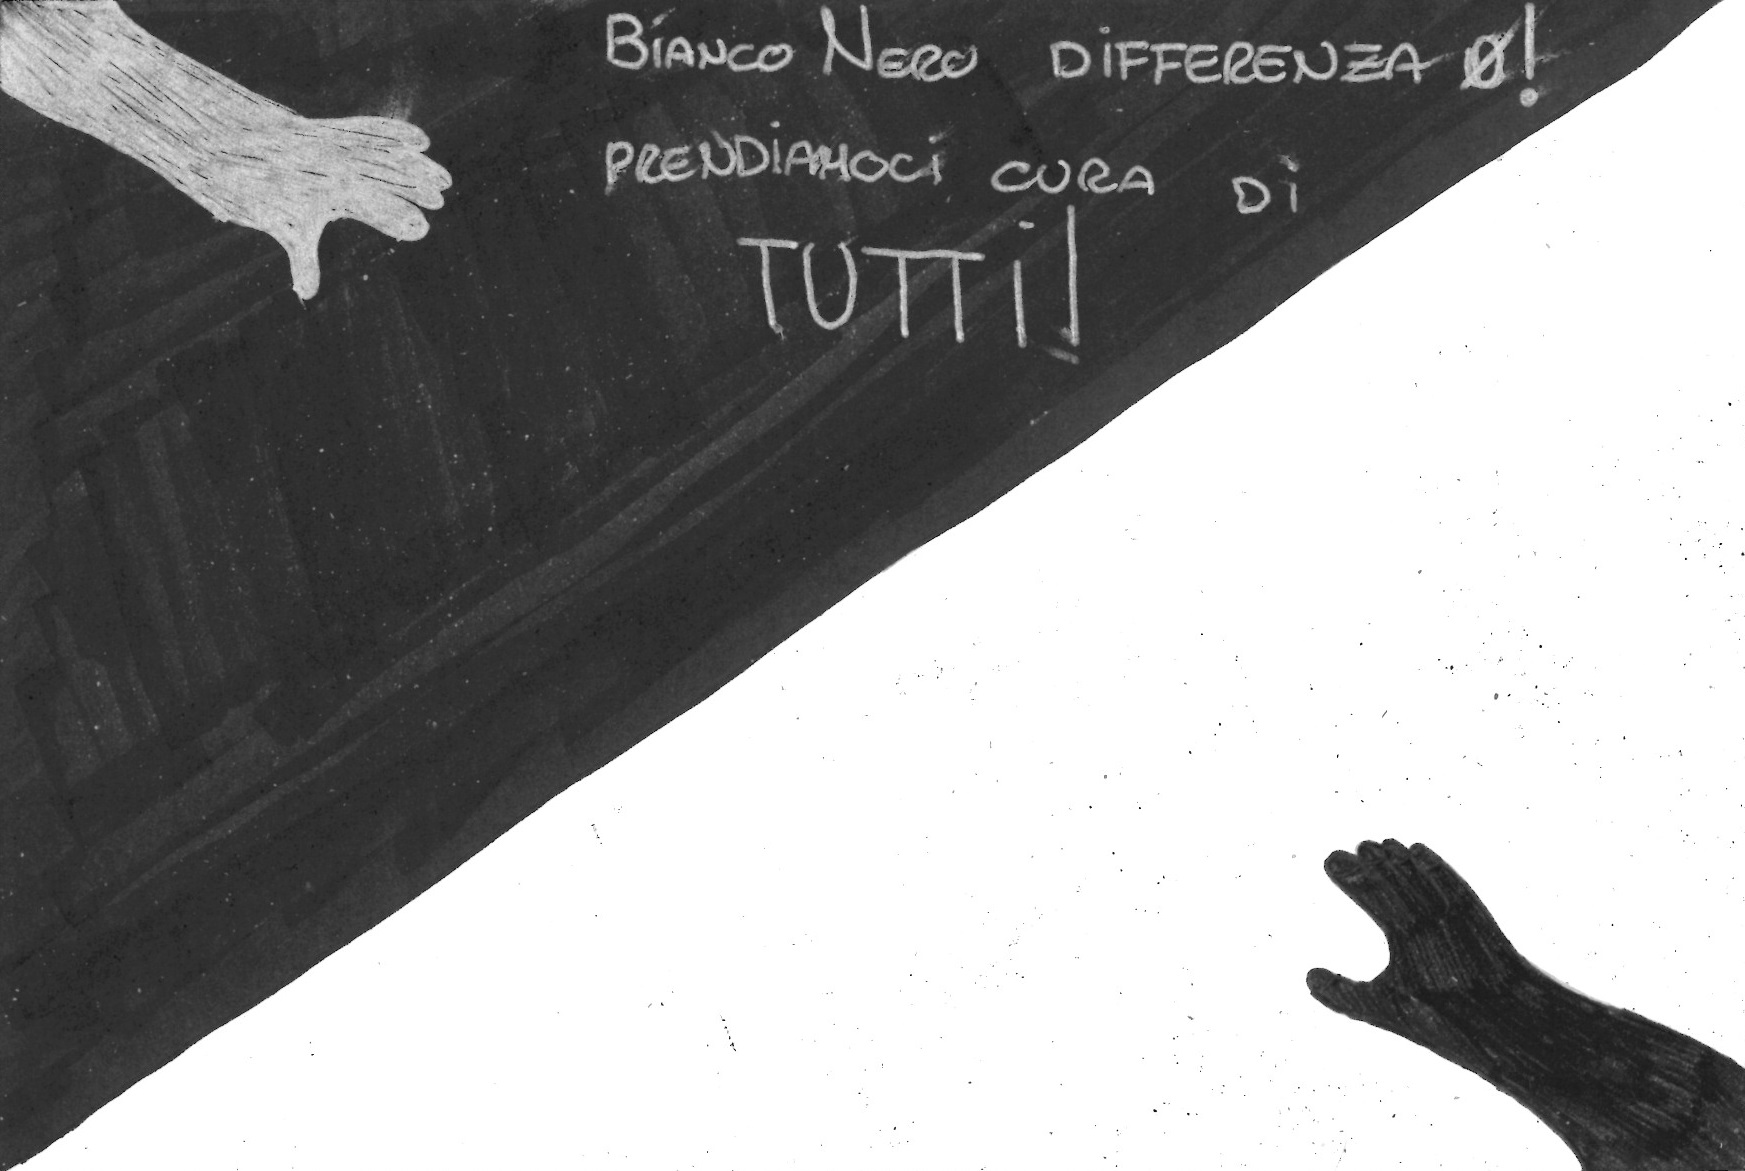 Bianco Nero differenza Ø!
prendiamoci cura di
TUTTi!